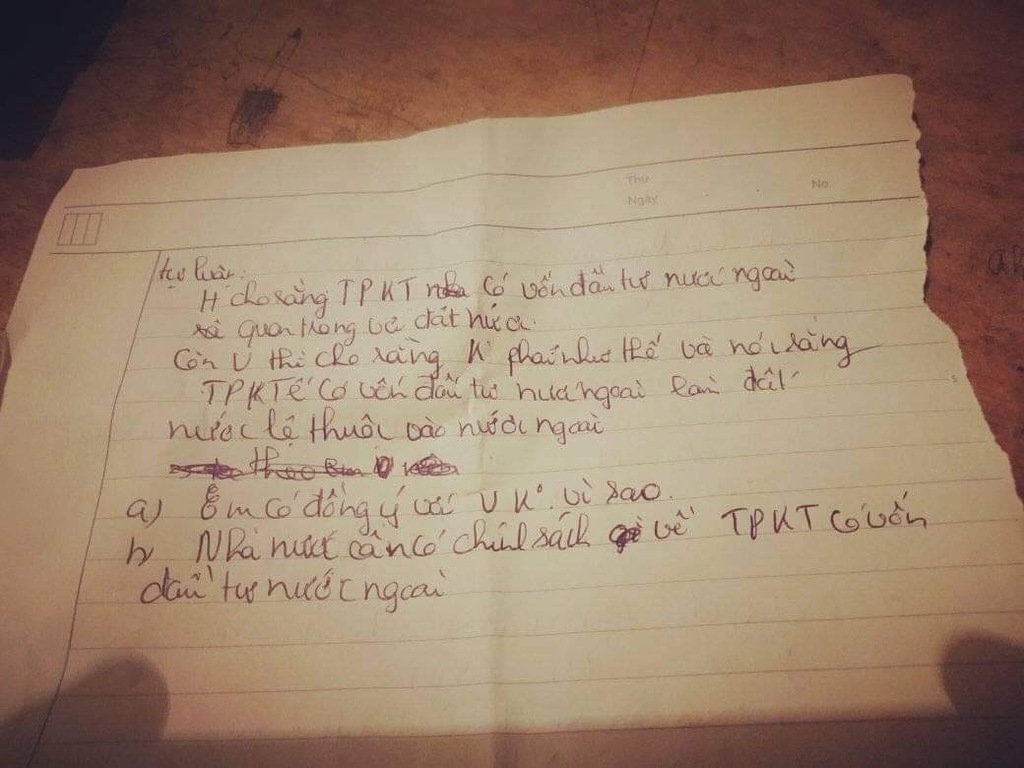 Thứ No
Ngày
tự luận:
H cho rằng TPKT có vốn đầu tư nước ngoài
quan trọng về đất nước.
Còn V thì cho rằng K° phải như thế và nói rằng
TPKTế có vốn đầu tư nước ngoài làm đất
nước lệ thuộc vào nước ngoài
a) Em có đồng ý với V K°. vì sao.
b, Nhà nước cần có chính sách gì về TPKT có vốn
đầu tư nước ngoài